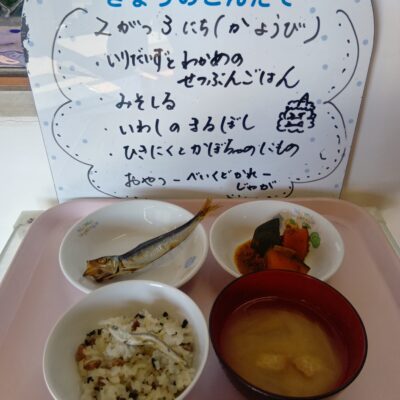 きょうのこんだて
2がつ3にち(かようび)
・いりだいずとわかめの
せつぶんごはん
・みそしる
・いわしのまるぼし
・ひきにくとかぼちゃのにもの
おやつーべいくどかれー
じゃが